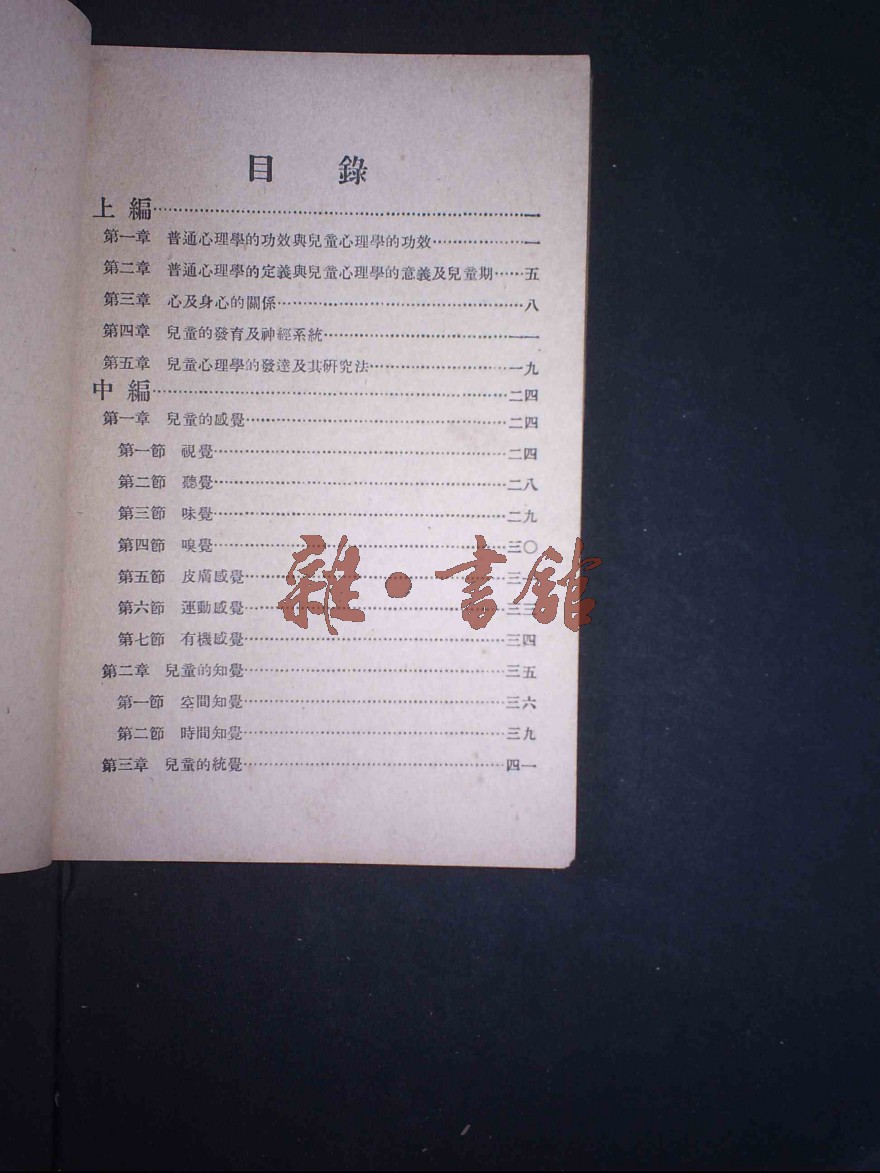 目錄
上編……一
第一章 普通心理學的功效與兒童心理學的功效……一
第二章 普通心理學的定義與兒童心理學的意義及兒童期……五
第三章 心及身心的關係……八
第四章 兒童的發育及神經系統……一一
第五章 兒童心理學的發達及其研究法……一九
中編……二四
第一章 兒童的感覺……二四
第一節 視覺……二四
第二節 聽覺……二八
第三節 味覺……二九
第四節 嗅覺……三〇
第五節 皮膚感覺……三
第六節 運動感覺……三三
第七節 有機感覺……三四
第二章 兒童的知覺……三五
第一節 空間知覺……三六
第二節 時間知覺……三九
第三章 兒童的統覺……四一
雜·書館